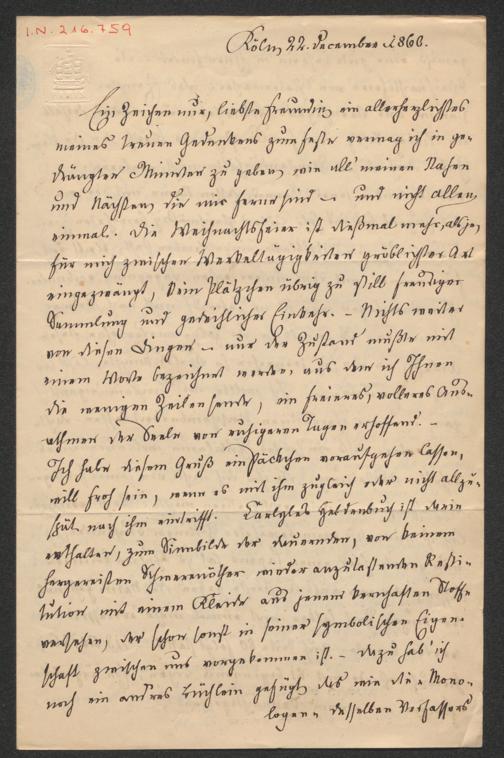 I.N. 216.759
Köln, 22. December 1866.
Ein Zeichen nur, liebste Freundin, ein allerherzlichstes
meines treuen Gedenkens zum Feste vermag ich in ge-
drängten Minuten zu geben, wie all' meinen Nahen
und Nächsten, die mir ferne sind – und nicht allen
einmal. Die Weihnachtsfeier ist dießmal mehr, als je,
für mich zwischen Werkeltägigkeiten gröblichster Art
eingezwängt, kein Plätzchen übrig zu still freudiger
Sammlung und gedeihlicher Einkehr. – Nichts weiter
von diesen Dingen – nur der Zustand mußte mit
einem Worte bezeichnet werden, aus dem ich Ihnen
die wenigen Zeilen sende, ein freieres, volleres Auf-
athmen der Seele von ruhigeren Tagen erhoffend. –
Ich habe diesem Gruß ein Päckchen vorausgehen lassen,
will froh sein, wenn es mit ihm zugleich oder nicht allzu-
spät nach ihm eintrifft. Carlyles Heldenbuch ist darin
enthalten, zum Sinnbilde der dauernden, von keinem
hergereisten wieder anzutastenden Resti-
tution mit einem Kleide aus jenem Stoffe
versehen, der schon sonst in seiner symbolischen Eigen-
schaft zwischen uns vorgekommen ist. – Dazu hab' ich
noch ein andres Büchlein gefügt, das wie die „Mono-
logen" desselben Verfassers